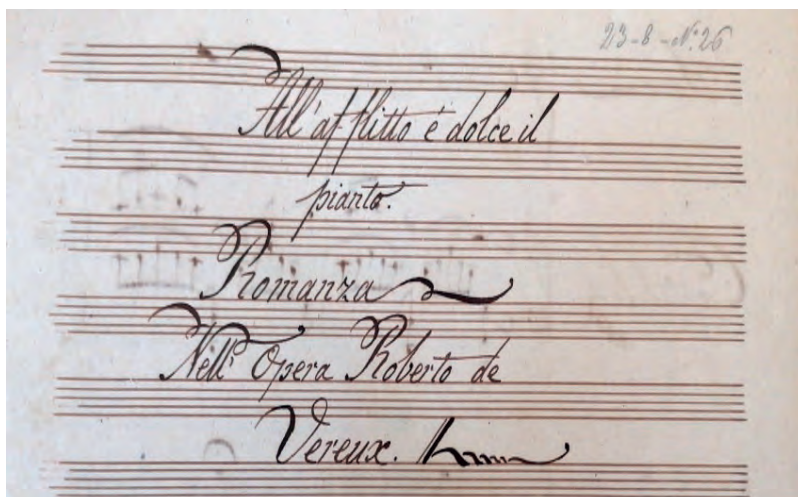 23-8-Nº.26
All'afflitto é dolce il
pianto.
Romanza
Nell' Opera Roberto de
Vereux.